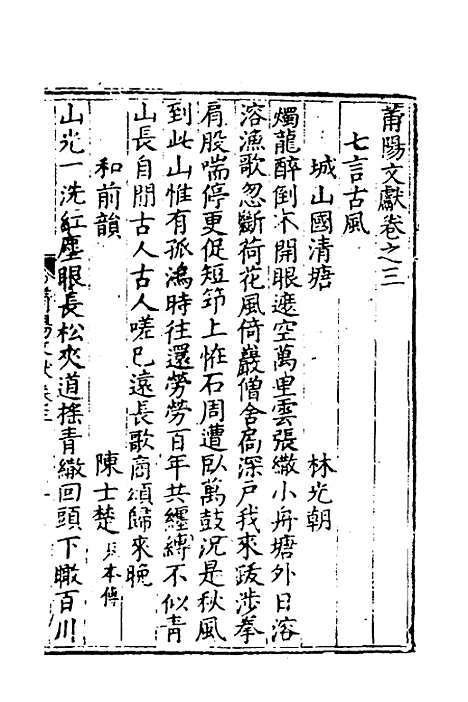 莆陽文獻卷之三
七言古風
城山國清塘　林光朝
燭龍醉倒不開眼遮空萬里雲張繖小舟塘外日溶
溶漁歌忽斷荷花風倚巖僧舍扄深戸我來跋涉拳
肩股喘停更促短笻上恠石周遭臥萬鼓況是秋風
到此山惟有孤鴻時往還勞勞百年共纏縛不似青
山長自閒古人古人嗟已遠長歌商頌歸來晚
和前韻　陳士楚具本傳
山光一洗紅塵眼長松夾道揺青繖回頭下瞰百川
莆陽文獻卷三